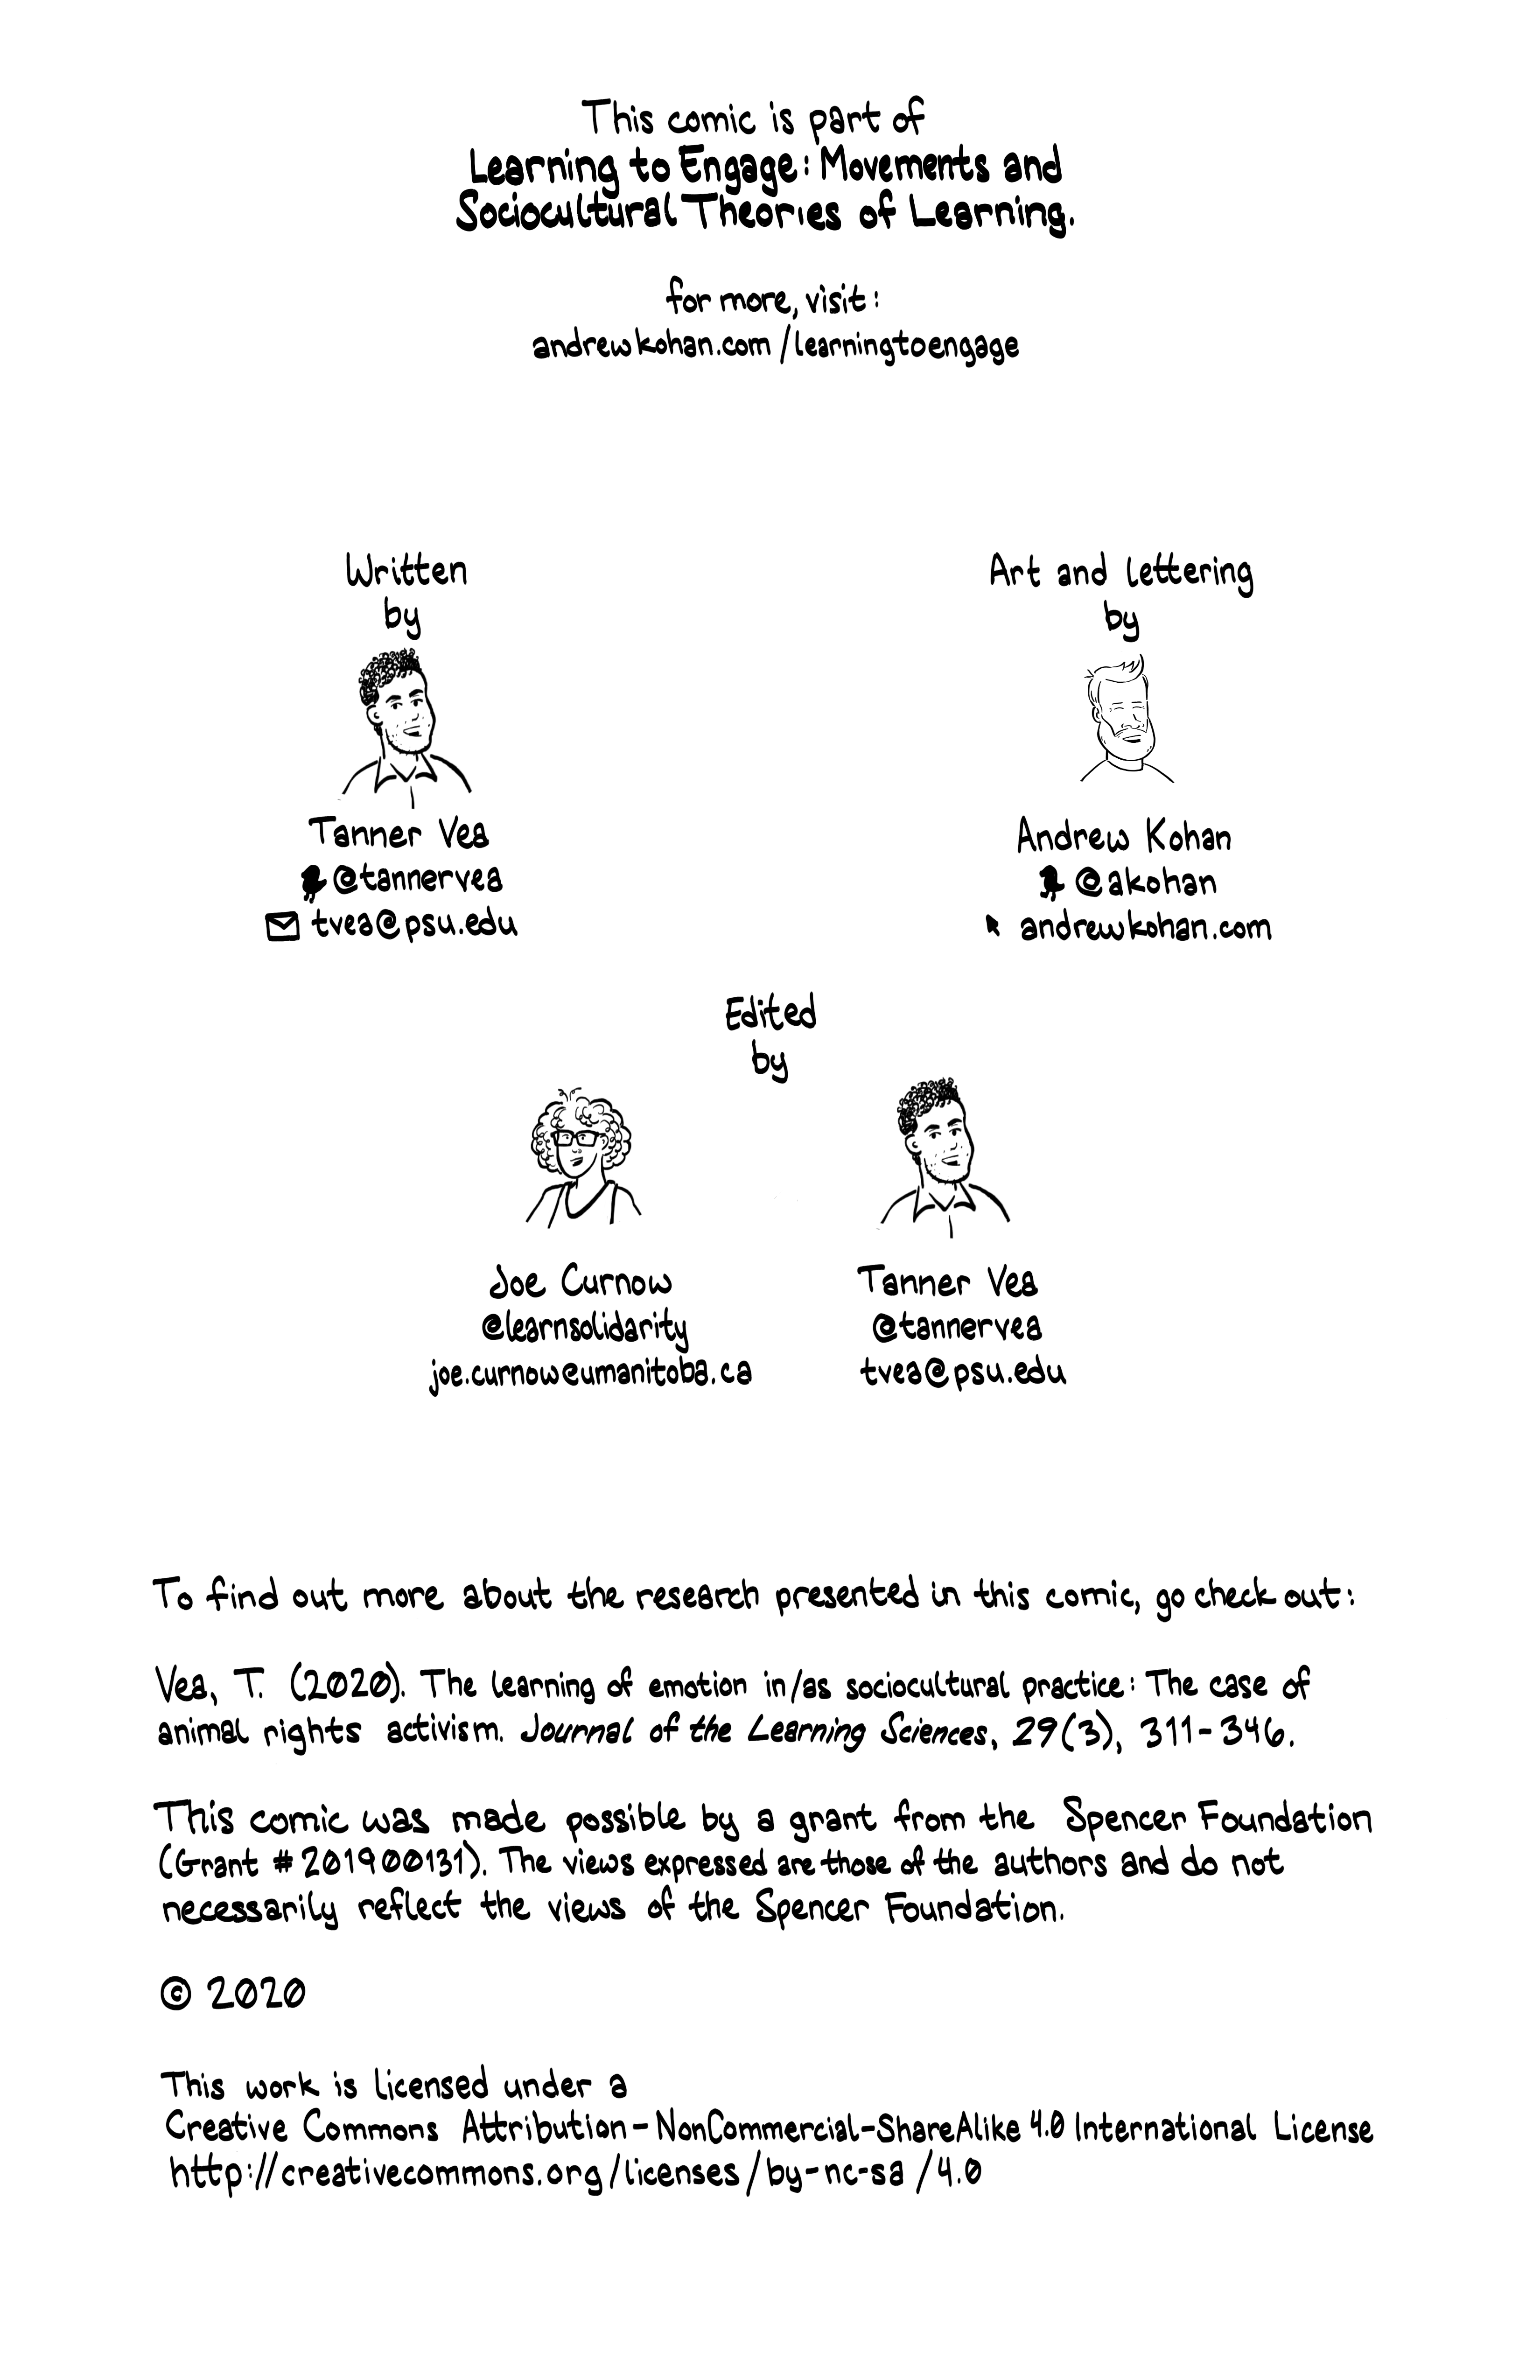 This comic is part of
Learning to Engage: Movements and
Sociocultural Theories of Learning.
for more, visit:
andrewkohan.com/learningtoengage
Written
by
Tanner Vea
@tannervea
tvea@psu.edu
Art and lettering
by
Andrew Kohan
@akohan
andrewkohan.com
Edited
by
Joe Curnow
@learnsolidarity
joe.curnow@umanitoba.ca
Tanner Vea
@tannervea
tvea@psu.edu
To find out more about the research presented in this comic, go check out:
Vea, T. (2020). The learning of emotion in/as sociocultural practice: The case of
animal rights activism. Journal of the Learning Sciences, 29(3), 311-346.
This comic was made possible by a grant from the Spencer Foundation
(Grant #201900131). The views expressed are those of the authors and do not
necessarily reflect the views of the Spencer Foundation.
© 2020
This work is licensed under a
Creative Commons Attribution-NonCommercial-ShareAlike 4.0 International License
http://creativecommons.org/licenses/by-nc-sa/4.0